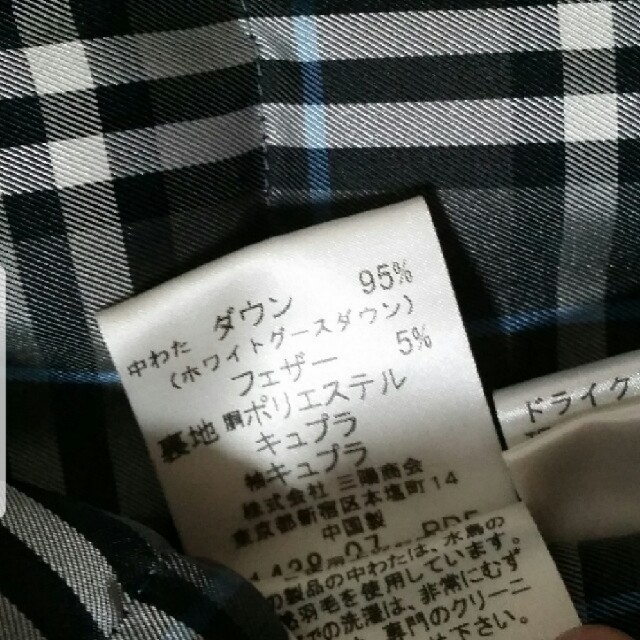 中わた ダウン 95%
(ホワイトグースダウン)
フェザー 5%
裏地 胴ポリエステル
キュプラ
袖キュプラ
株式会社 三陽商会
東京都新宿区本塩町14
中国製
の製品の中わたは、水鳥の
羽毛を使用しています。
の洗濯は、非常にむず
専門のクリーニ
下さい。
ドライク